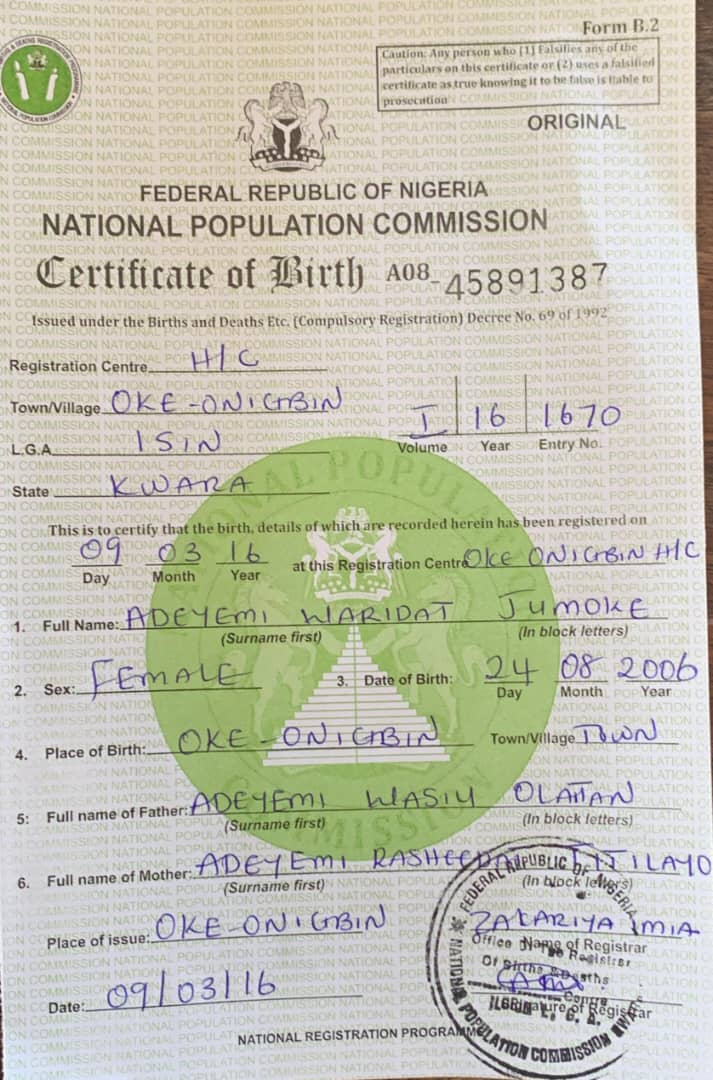 Form B.2
Caution: Any person who (1) Falsifies any of the
particulars on this certificate or (2) uses a falsified
certificate as true knowing it to be false is liable to
prosecution
ORIGINAL
FEDERAL REPUBLIC OF NIGERIA
NATIONAL POPULATION COMMISSION
Certificate of Birth A08-45891387
Issued under the Births and Deaths Etc. (Compulsory Registration) Decree No. 69 of 1992
Registration Centre H/C
Town/Village OKE-ONIGBIN
I 16 1670
Volume Year Entry No.
L.G.A. ISIN
State KWARA
This is to certify that the birth, details of which are recorded herein has been registered on
09 03 16 at this Registration Centre OKE ONIGBIN H/C
Day Month Year
1. Full Name: ADEYEMI WARIDAT JUMOKE
(Surname first) (In block letters)
2. Sex: FEMALE 3. Date of Birth: 24 08 2006
Day Month Year
4. Place of Birth: OKE-ONIGBIN Town/Village TOWN
5: Full name of Father: ADEYEMI WASIU OLATAN
(Surname first) (In block letters)
6. Full name of Mother: ADEYEMI RASHEEDAT TITILAYO
(Surname first) (In block letters)
Place of issue: OKE-ONIGBIN
ZAKARIYA MIA
Name of Registrar
Date: 09/03/16
Signature of Registrar
NATIONAL REGISTRATION PROGRAMME
FEDERAL REPUBLIC OF NIGERIA
NATIONAL POPULATION COMMISSION